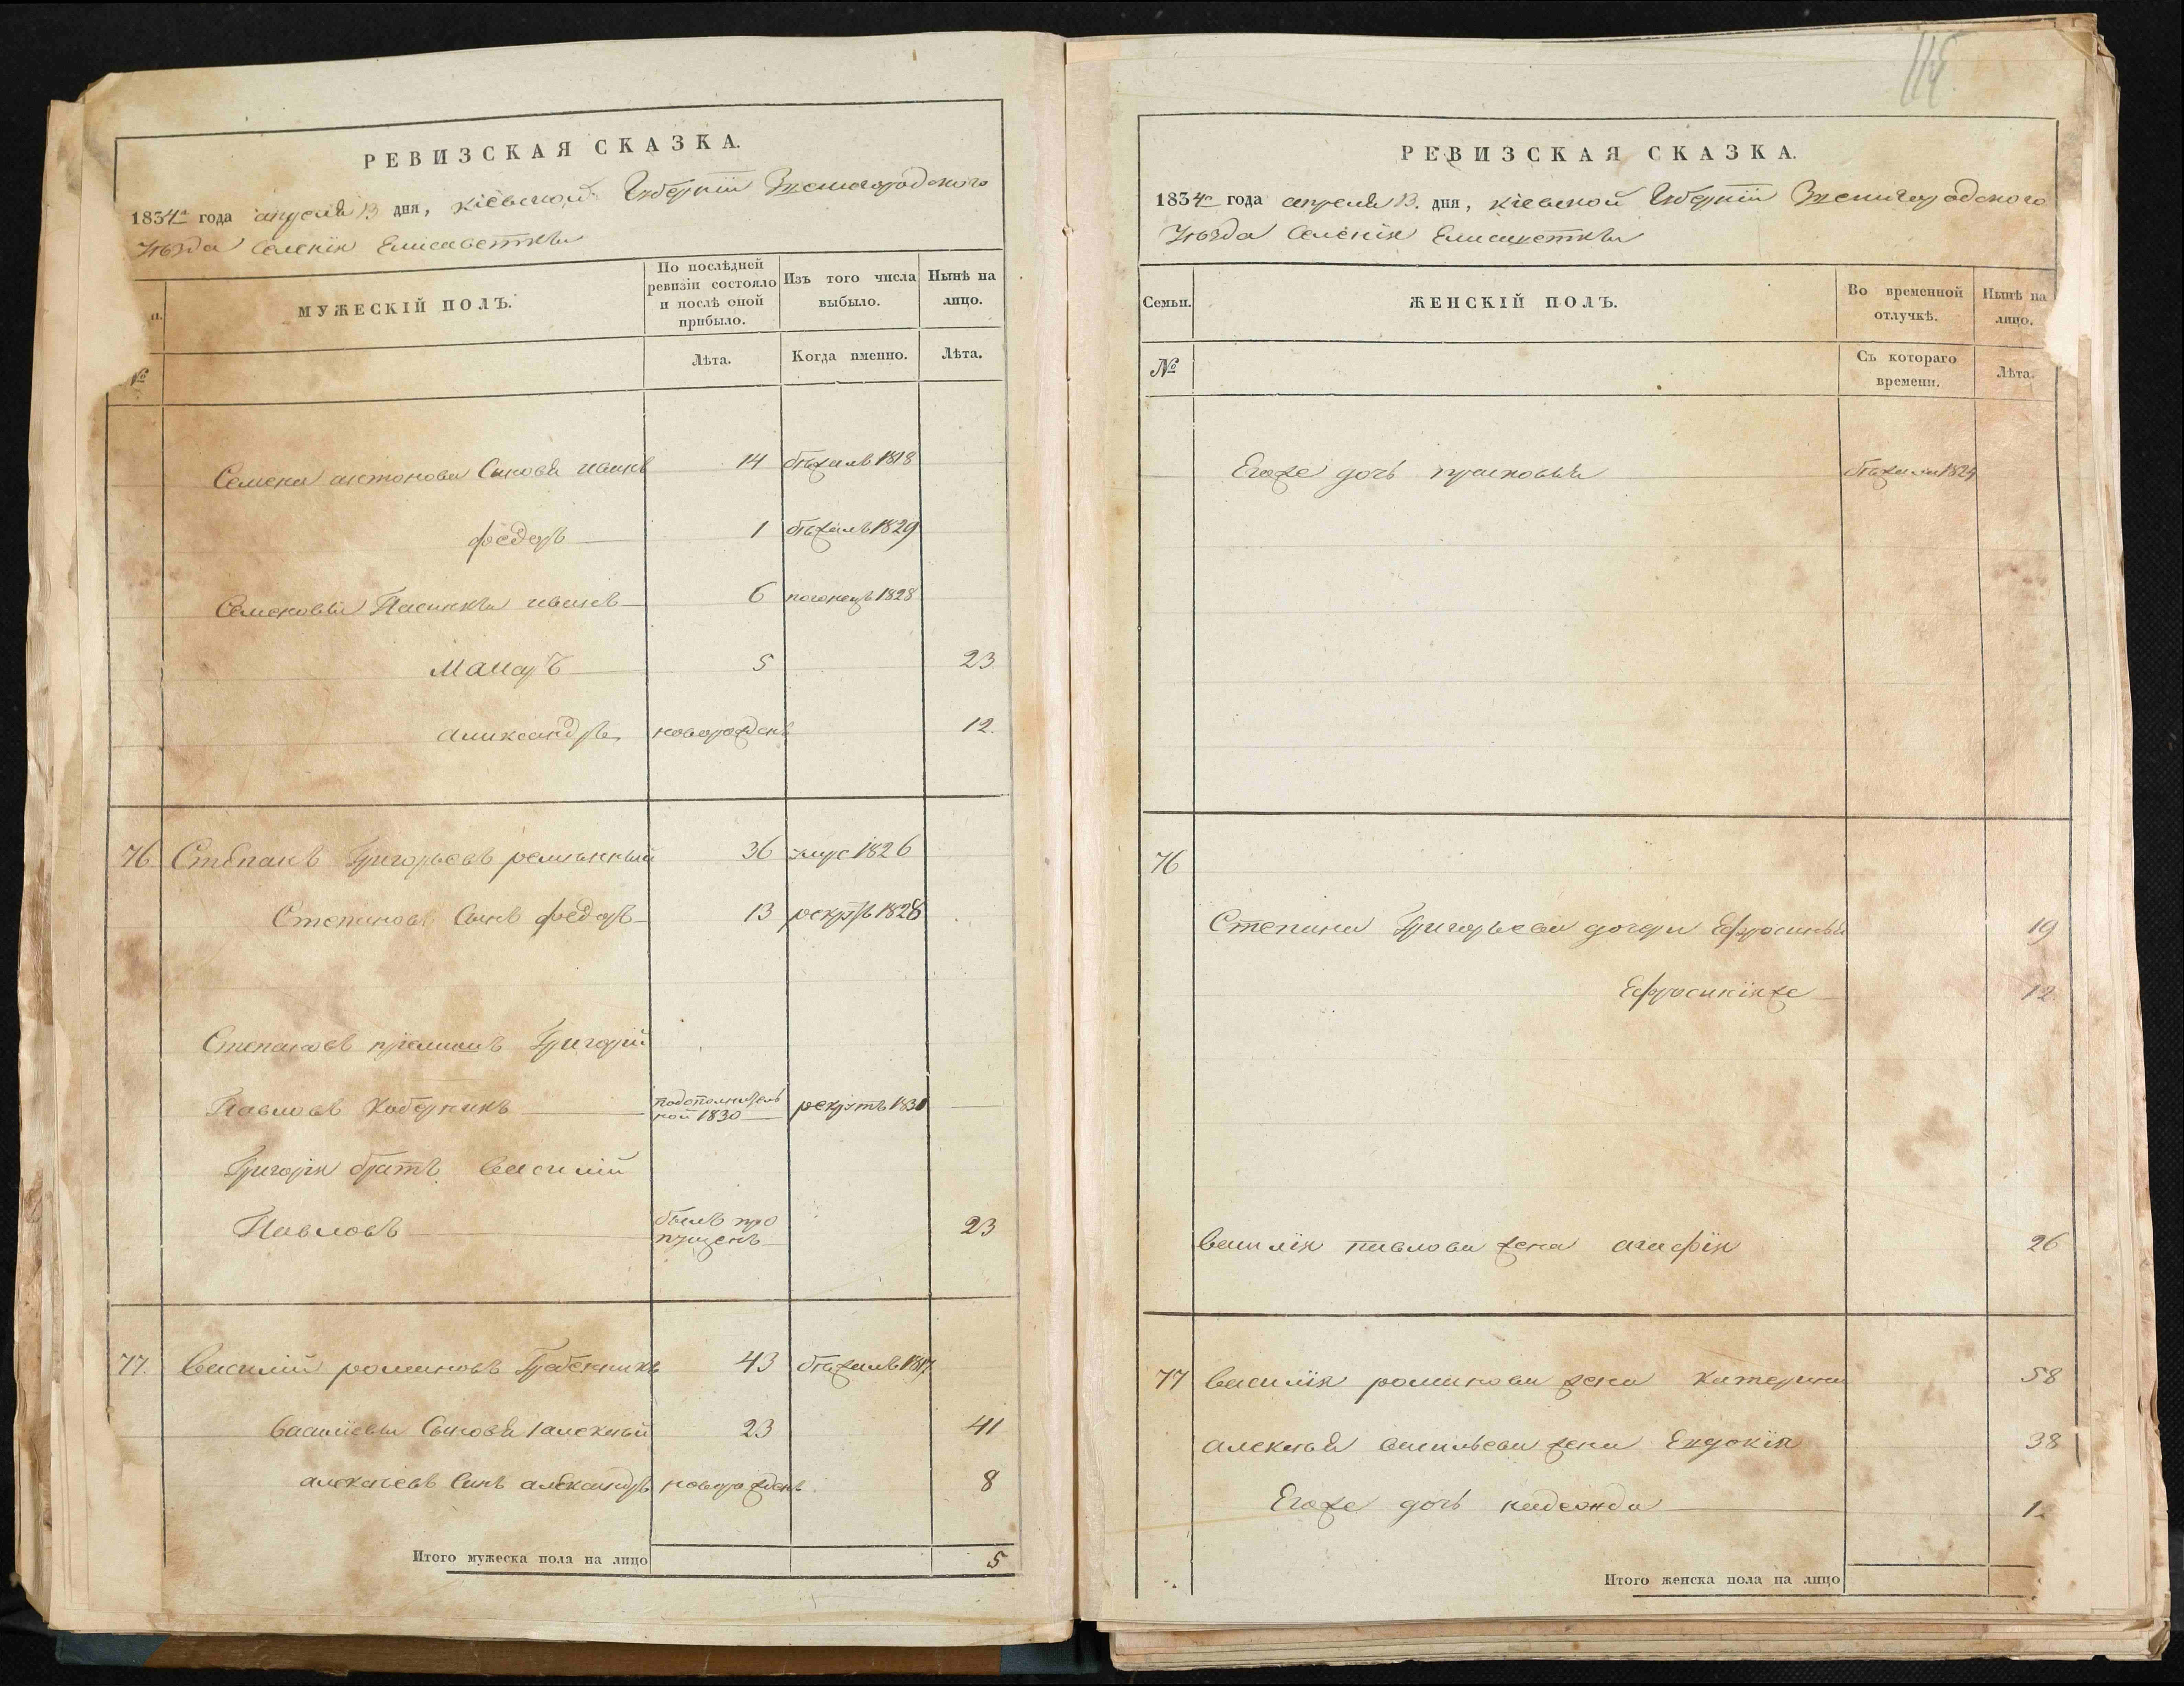 РЕВИЗСКАЯ СКАЗКА.
1834го года апреля 13 дня, Кіевской Губерніи Звенигородского
Уѣзда Селенія Елисаветки
МУЖЕСКІЙ ПОЛЪ.
По послѣдней ревизіи состояло и послѣ оной прибыло.
Изъ того числа выбыло.
Нынѣ на лицо.
№
Лѣта.
Когда именно.
Лѣта.
Семена антонова Сыновья иванъ 14 бѣжалъ 1818
федоръ 1 бѣжалъ 1829
Семеновы Пасинки иванъ 6 1828
Макаръ 5 23
александръ новорожденъ 12.
76 Степанъ Григорьевъ 36 умре 1826
Степановъ Сынъ федоръ 13 рекрутъ 1828
Степановъ Григорій
Павловъ подополнитель
ной 1830 рекрутъ 1830
Григорія братъ Василій
Павловъ былъ про
пущенъ 23
77. Василій романовъ Гребенникъ 43 бѣжалъ 1817
Василіевы Сыновья 1 алексѣй 23 41
алексѣевъ Сынъ александръ новорожденъ 8
Итого мужеска пола на лицо 5
115
РЕВИЗСКАЯ СКАЗКА.
1834го года апреля 13. дня, Кіевской Губерніи Звенигородского
Уѣзда Селенія Елисаветки
Семьи.
ЖЕНСКІЙ ПОЛЪ.
Во временной отлучкѣ.
Нынѣ на лицо.
№
Съ котораго времени.
Лѣта.
Егоже дочь прасковья бѣжала 1824
76
Степана Григорьева дочери Ефросинья 19
Ефросиніяже 12
Василія павлова жена агафія 26
77 Василія романова жена Катерина 58
алексѣя васильева жена Евдокія 38
Егоже дочь надежда
Итого женска пола на лицо